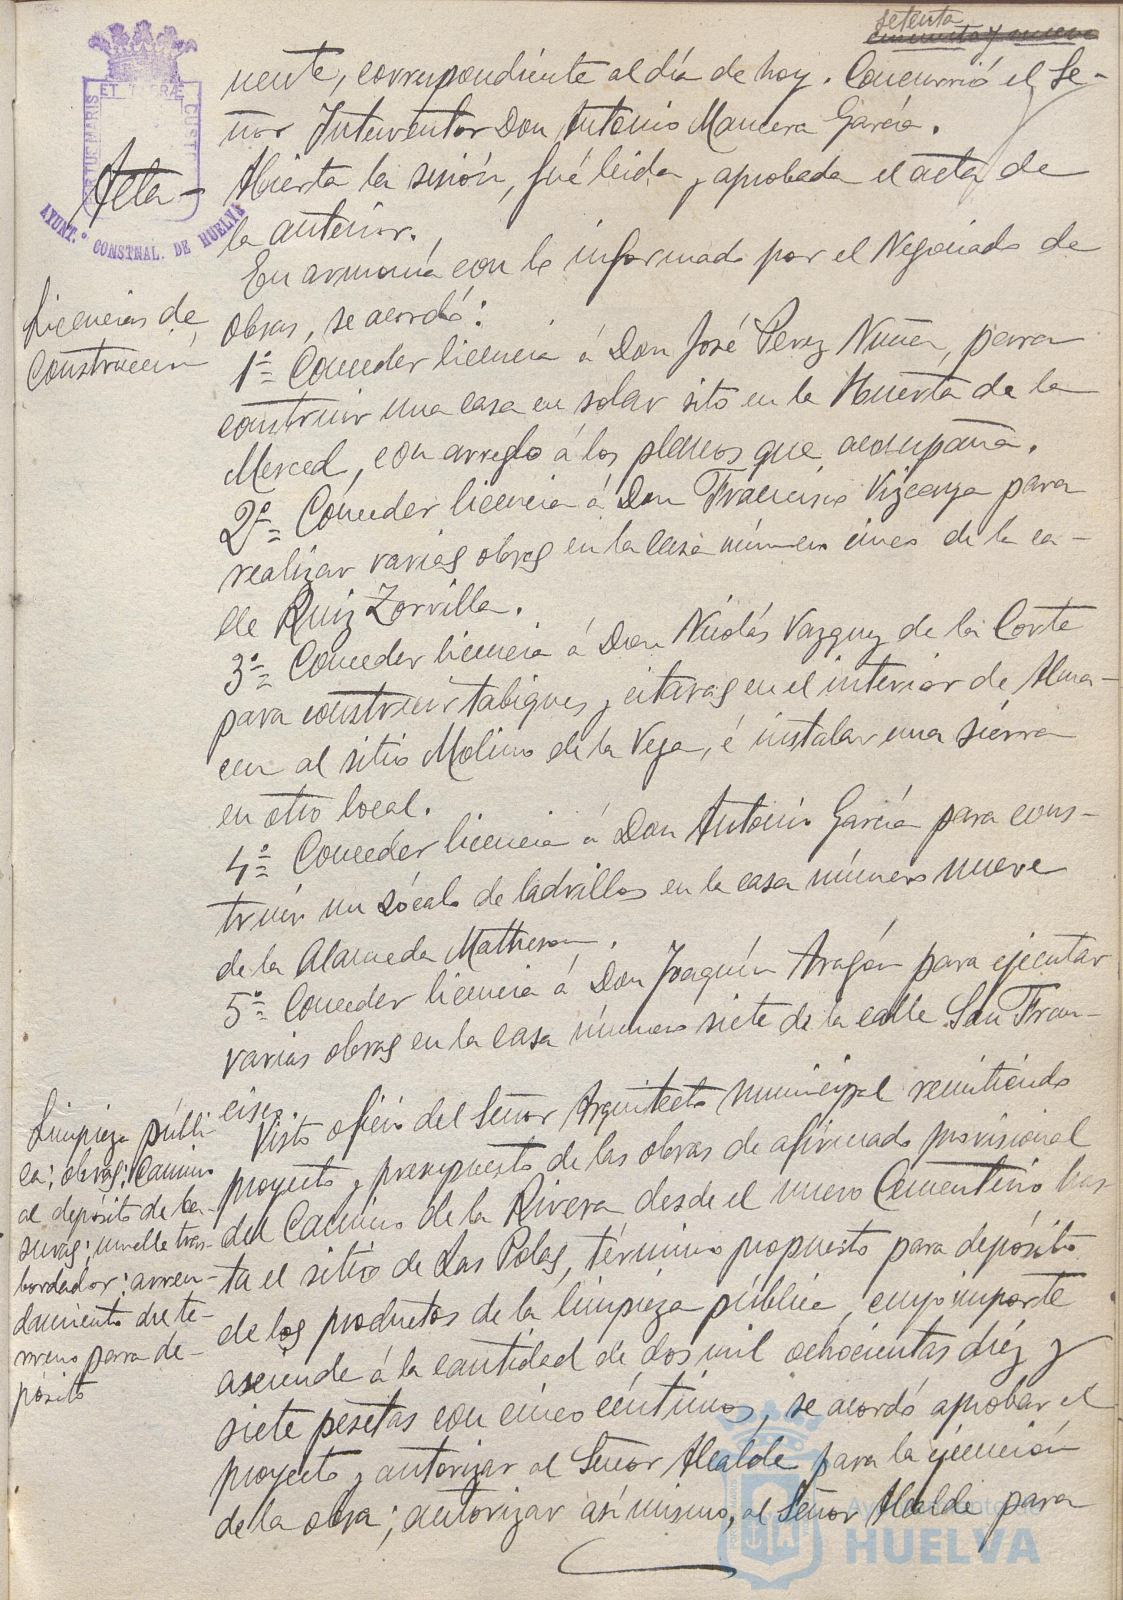 setenta
cincuenta y nueve
nente, correspondiente al día de hoy. Concurrió el Se-
ñor Interventor Don Antonio Mancera García.
Acta- Abierta la sesión, fué leida y aprobada el acta de
la anterior.
En armonía con lo informado por el Negociado de
Licencias de Obras, se acordó:
Construcción 1º= Conceder licencia á Don José Perez Nuñez, para
construir una casa en solar sito en la Huerta de la
Merced, con arreglo á los planos que acompaña.
2º= Conceder licencia á Don Francisco Vizcaya para
realizar varias obras en la casa número cinco de la ca-
lle Ruiz Zorrilla.
3º= Conceder licencia á Don Nicolás Vazquez de la Corte
para construir tabiques y citaras en el interior de Alma-
cen al sitio Molino de la Vega, é instalar una sierra
en otro local.
4º= Conceder licencia á Don Antonio García para cons-
truir un zócalo de ladrillos en la casa número nueve
de la Alameda Matheson.
5º= Conceder licencia á Don Joaquín Aragón para ejecutar
varias obras en la casa número siete de la calle San Fran-
cisco.
Limpieza públi-
ca; obras; Camino
al depósito de ba-
suras; muelle tras-
bordador; arren-
damiento de te-
rreno para de-
pósito
Visto oficio del Señor Arquitecto Municipal remitiendo
proyecto y presupuesto de las obras de afirmado provisional
del Camino de la Rivera desde el nuevo Cementerio has-
ta el sitio de Las Polas, término propuesto para depósito
de los productos de la limpieza pública, cuyo importe
asciende á la cantidad de dos mil ochocientas diéz y
siete pesetas con cinco céntimos, se acordó aprobar el
proyecto y autorizar al Señor Alcalde para la ejecución
de la obra; autorizar asímismo, al Señor Alcalde para
VIRTUS MARIS ET TERRAE CUSTO
AYUNT.º CONSTNAL. DE HUELVA
Ayuntamiento de
HUELVA